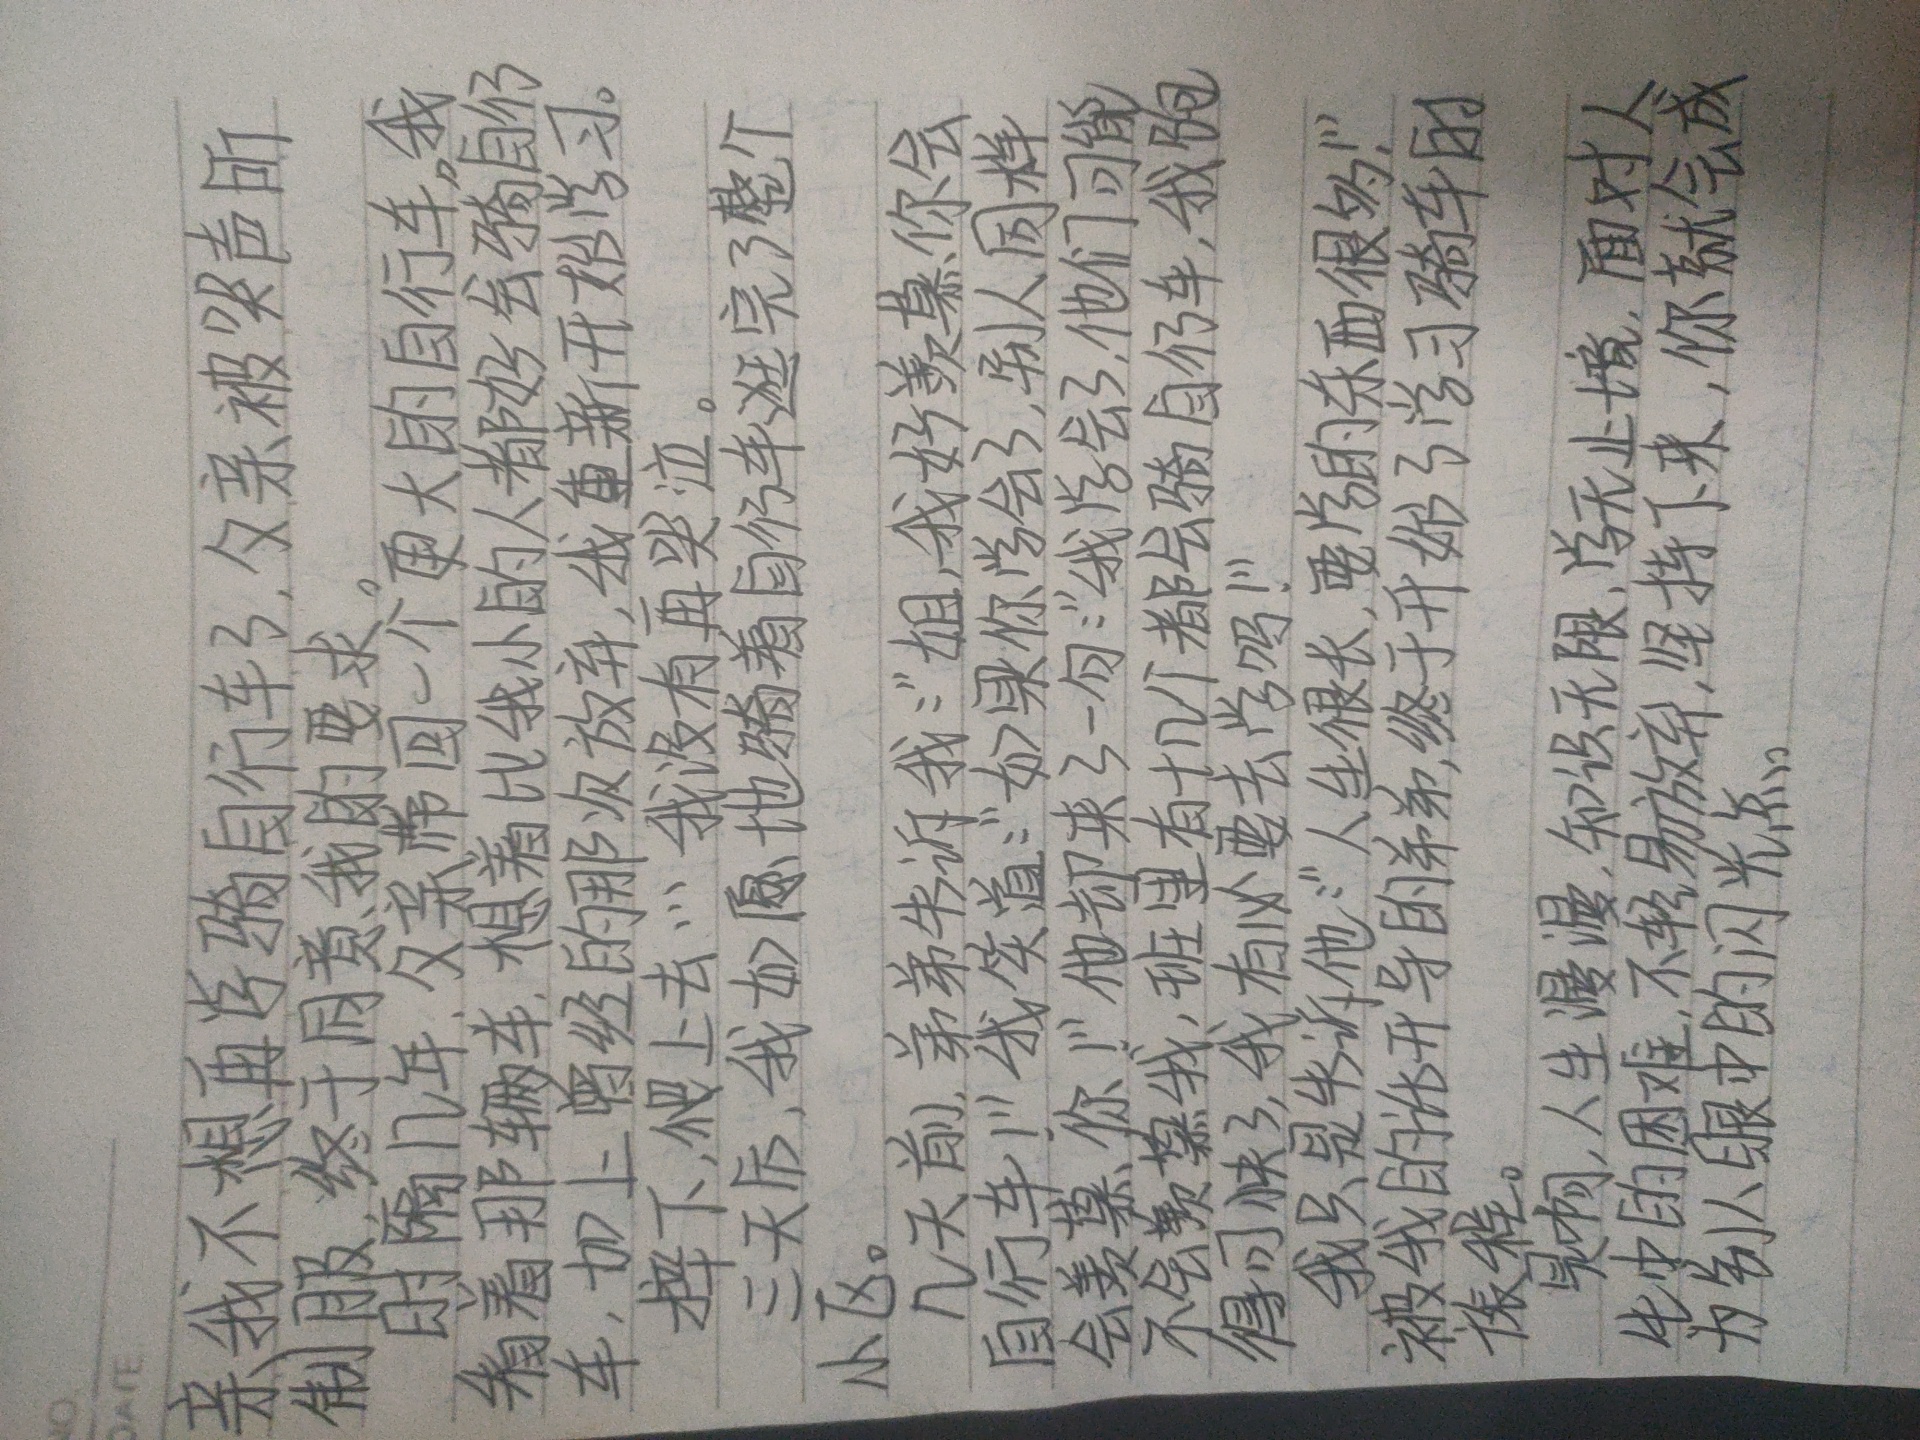 NO.
DATE
亲我不想再学骑自行车了，父亲被哭声所
制服，终于同意我的要求。
时隔几年，父亲带回一个更大的自行车。我
看着那辆车，想着比我小的人都好会骑自行
车，加上曾经的那次放弃，我重新开始学习。
摔下，爬上去…我没有再哭泣。
三天后，我如愿地骑着自行车逛完了整个
小区。
几天前，弟弟告诉我："姐，我好羡慕你会
自行车！"我笑道："如果你学会了，别人同样
会羡慕你！"他却来了一句："我学会了，他们可能
不会羡慕我，班里有十几个都会骑自行车，我觉
得可快了，我有必要去学吗！"
我只是告诉他："人生很长，要学的东西很多，"
被我的话开导的弟弟，终于开始了学习骑车的
旅程。
是啊，人生漫漫，知识无限，学无止境，面对人
生中的困难，不轻易放弃，坚持下来，你就会成
为别人眼中的闪光点。